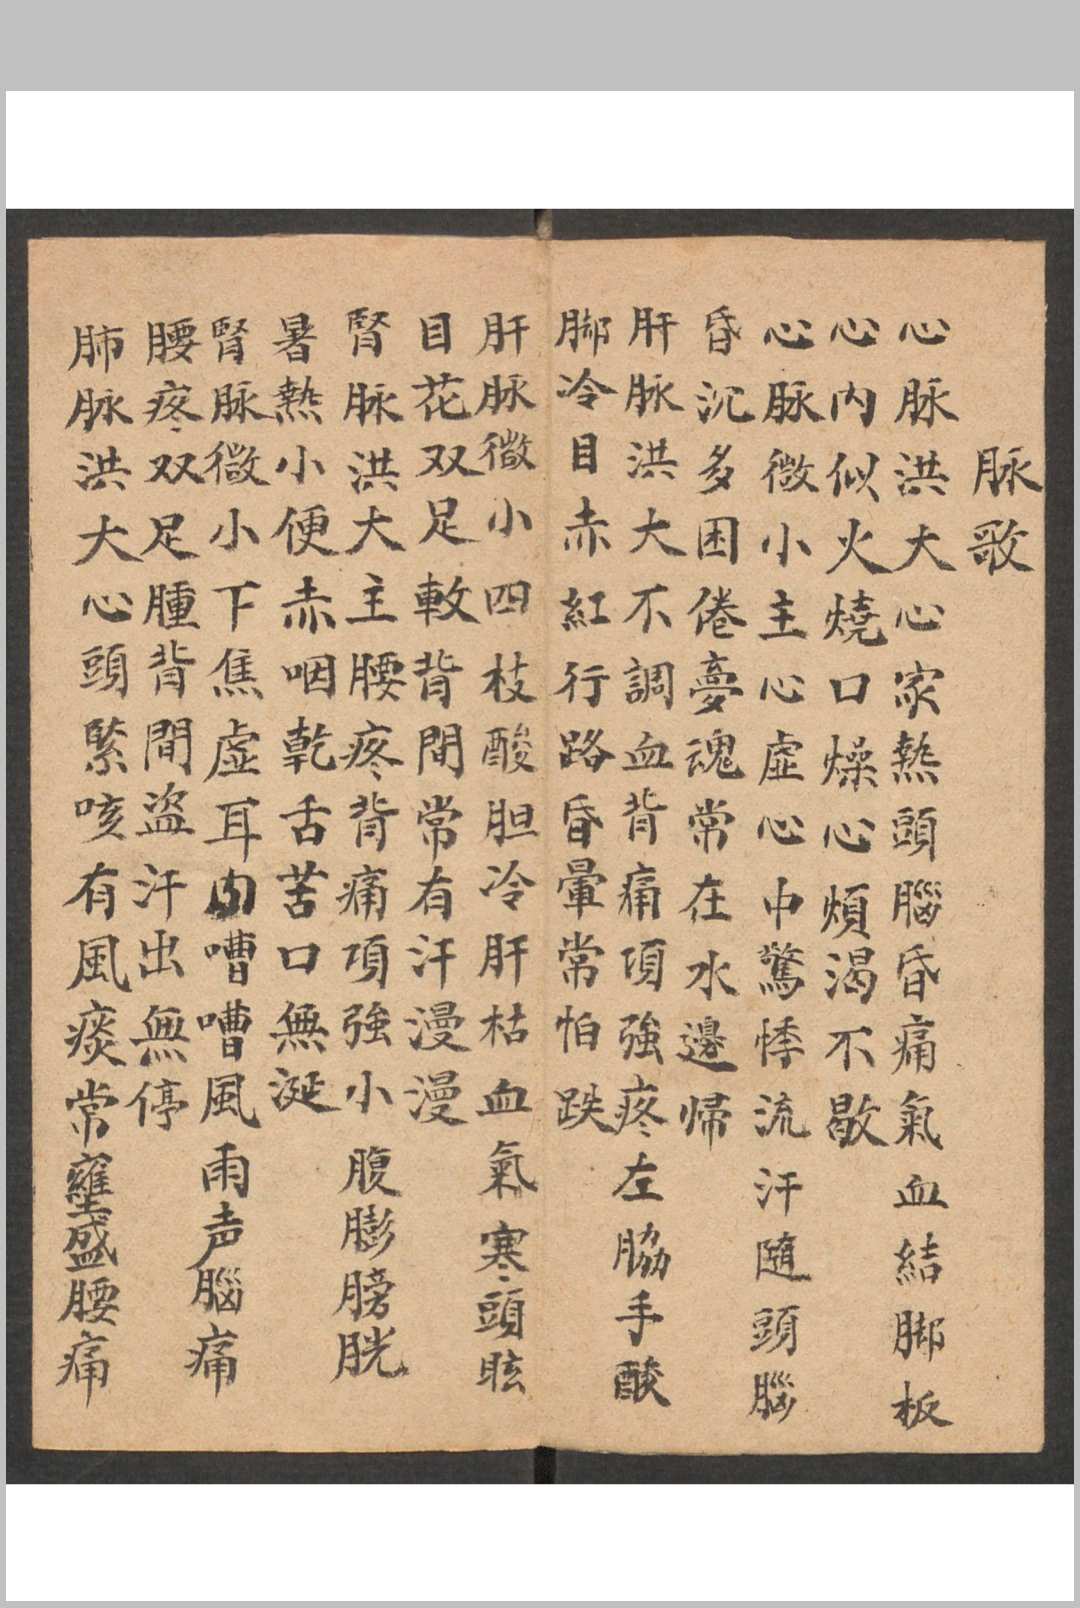 脉歌
心脉洪大心家熱頭腦昏痛氣血結脚板
心内似火燒口燥心煩渴不歇
心脉微小主心虛心中驚悸流汗隨頭腦
昏沉多困倦夢魂常在水邊帰
肝脉洪大不調血背痛項強疼左脇手酸
脚冷目赤紅行路昏暈常怕跌
肝脉微小四枝酸胆冷肝枯血氣寒頭眩
目花双足軟背間常有汗漫漫
腎脉洪大主腰疼背痛項強小腹膨膀胱
暑熱小便赤咽乾舌苦口無涎
腎脉微小下焦虛耳内嘈嘈風雨声腦痛
腰疼双足腫背間盜汗出無停
肺脉洪大心頭緊咳有風痰常壅盛腰痛